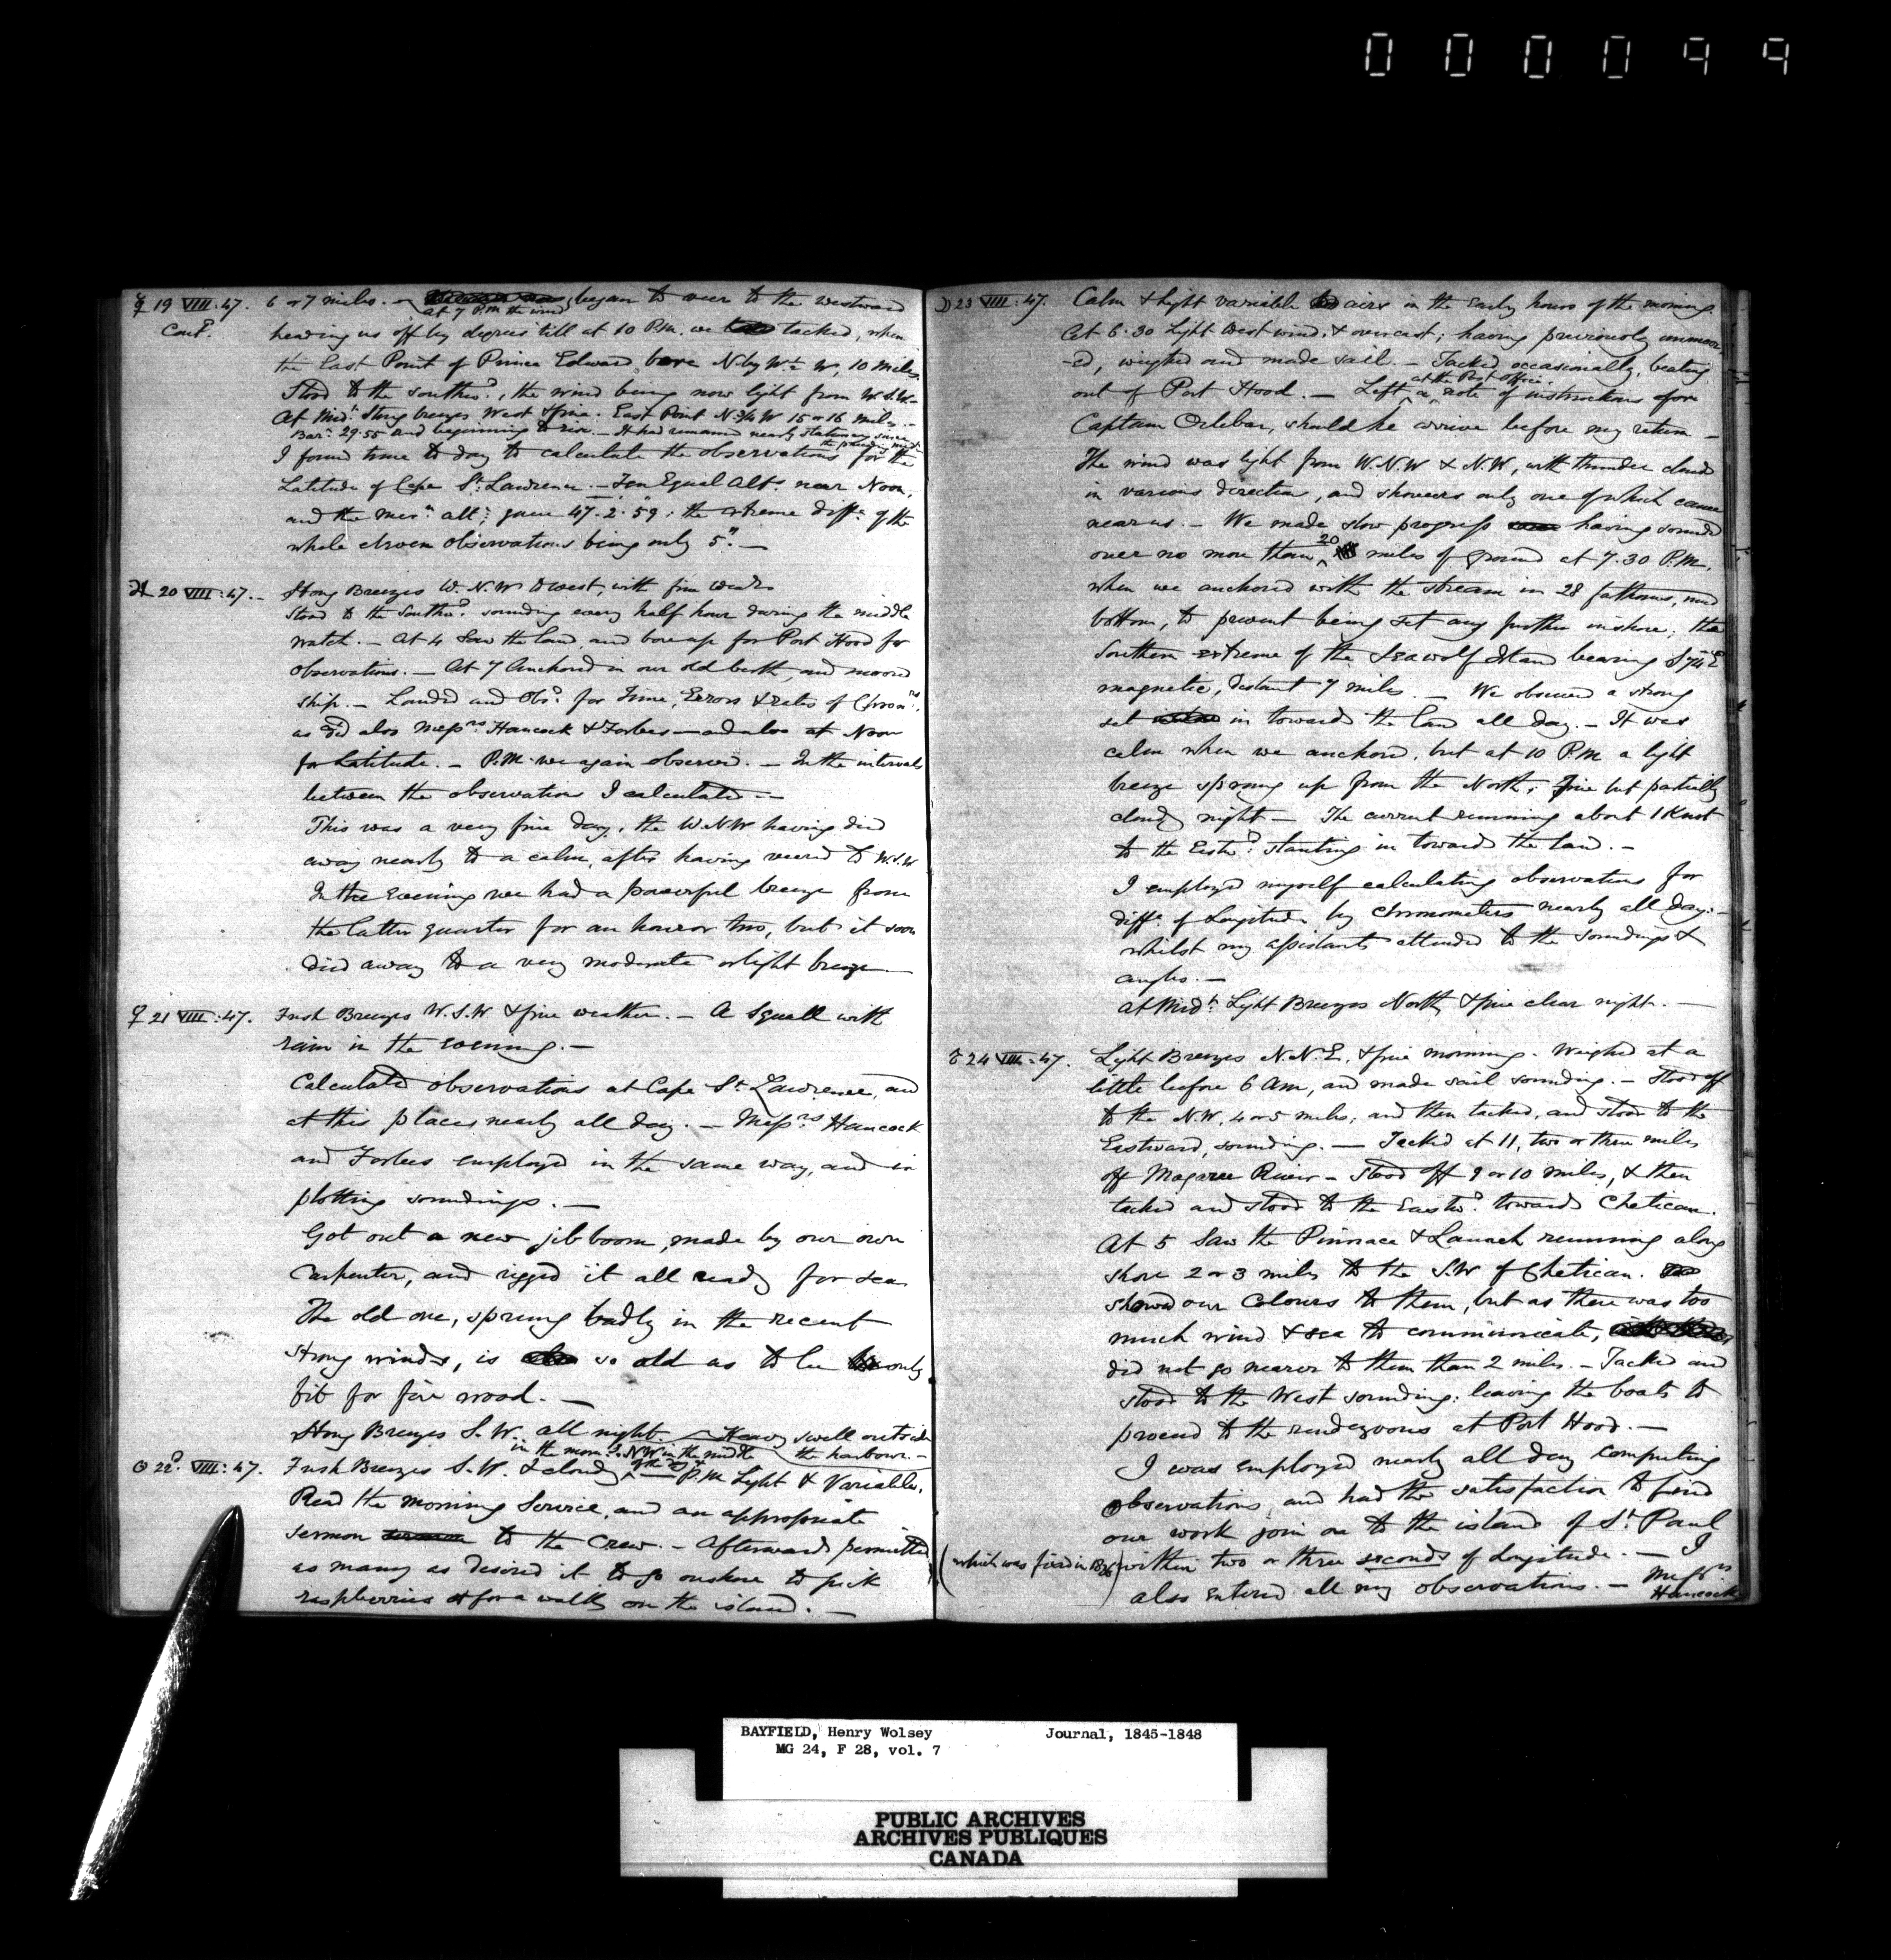 000099
☿ 19 VIII:47. 6 or 7 miles. – began to veer to the westward
Contd. at 7 P.M the wind
heading us off by degrees till at 10 P.M. we tacked, when
the East Point of Prince Edward bore N by W ½ W, 10 miles.
Stood to the southwd., the wind being now light from W.S.W.–
At Midt. Strong breezes West & fine. East Point N ¾ W 15 or 16 miles.–
Barr. 29.55 and beginning to rise. – It had remained nearly stationary since
the preceding midt.
I found time to day to calculate the observations for the
Latitude of Cape St. Lawrence. – Ten Equal Alts. near Noon,
and the mern. alt; gave 47.2.59; the extreme diffce. of the
whole eleven observations being only 5". –
♃ 20 VIII:47.– Strong Breezes W.N.W to west, with fine weather
Stood to the Southwd. sounding every half hour during the middle
watch. – At 4 Saw the land, and bore up for Port Hood for
observations. – At 7 Anchored in our old berth, and moored
ship. – Landed and Obsd. for Time, Errors & rates of Chronrs.,
as did also Messrs Hancock & Forbes – and also at Noon
for Latitude. – P.M. we again observed. – In the intervals
between the observations I calculated. –
This was a very fine day, the W.N.W having died
away nearly to a calm, after having veered to W.S.W
In the Evening we had a powerful breeze from
the latter quarter for an hour or two, but it soon
died away to a very moderate or light breeze. –
♀ 21 VIII:47. Fresh Breezes W.S.W & fine weather. – A Squall with
rain in the evening. –
Calculated observations at Cape St. Lawrence, and
at this place nearly all day. – Messrs Hancock
and Forbes employed in the same way, and in
plotting soundings. –
Got out a new jib boom, made by our own
Carpenter, and rigged it all ready for sea
The old one, sprung badly in the recent
strong winds, is so old as to be only
fit for fire wood. –
Strong Breezes S.W. all night. – Heavy swell outside
the harbour. –
in the morng. N.W in the middle
of the day
☉ 22d. VIII:47. Fresh Breezes S.W. & cloudy – P.M Light & Variable.
Read the morning Service, and an appropriate
sermon to the Crew. – Afterwards permitted
as many as desired it to go onshore to pick
raspberries & for a walk on the island. –
☽ 23 VIII:47. Calm & Light variable airs in the early hours of the morning.
At 6.30 Light West wind & overcast; having previously unmoor
-ed, weighed and made sail. – Tacked occasionally, beating
at the Post Office
out of Port Hood. – Left a note of instructions for
Captain Orlebar, should he arrive before my return –
The wind was light from W.N.W & N.W, with thunder clouds
in various direction, and showers only one of which came
near us. – We made slow progress having sounded
over no more than 20 miles of ground at 7.30 P.M.
when we anchored with the stream in 28 fathoms, mud
bottom, to prevent being set any further inshore; the
Southern extreme of the Seawolf Island bearing S 74 E
magnetic, distant 7 miles. – We observed a strong
set in towards the land all day. – It was
calm when we anchored, but at 10 P.M a light
breeze sprung up from the North; fine but partially
cloudy night – The current running about 1 Knot
to the Eastwd. slanting in towards the land. –
I employed myself calculating observations for
diffce. of Longitude by chronometers nearly all day. –
whilst my assistants attended to the soundings &
angles. –
At Midt. Light Breezes North & fine clear night. –
♂ 24 VIII:47. Light Breezes N.N.E. & fine morning. Weighed at a
little before 6 AM, and made sail sounding. – Stood off
to the N.W, 4 or 5 miles; and then tacked, and stood to the
Eastward, sounding. – Tacked at 11, two or three miles
off Magaree River – Stood off 9 or 10 miles, & then
tacked and stood to the Eastwd. towards Chetican.
At 5 Saw the Pinnace & Launch running along
shore 2 or 3 miles to the S.W of Chetican.
showed our Colours to them, but as there was too
much wind & sea to communicate,
did not go nearer to them than 2 miles. – Tacked and
stood to the West sounding: leaving the boats to
proceed to the rendezvous at Port Hood. –
I was employed nearly all day computing
observations, and had the satisfaction to find
our work join on to the island of St. Paul
(which was fixed in 1836) within two or three seconds of Longitude. – I
also entered all my observations. – Messrs
Hancock
BAYFIELD, Henry Wolsey Journal, 1845-1848
MG 24, F 28, vol. 7
PUBLIC ARCHIVES
ARCHIVES PUBLIQUES
CANADA